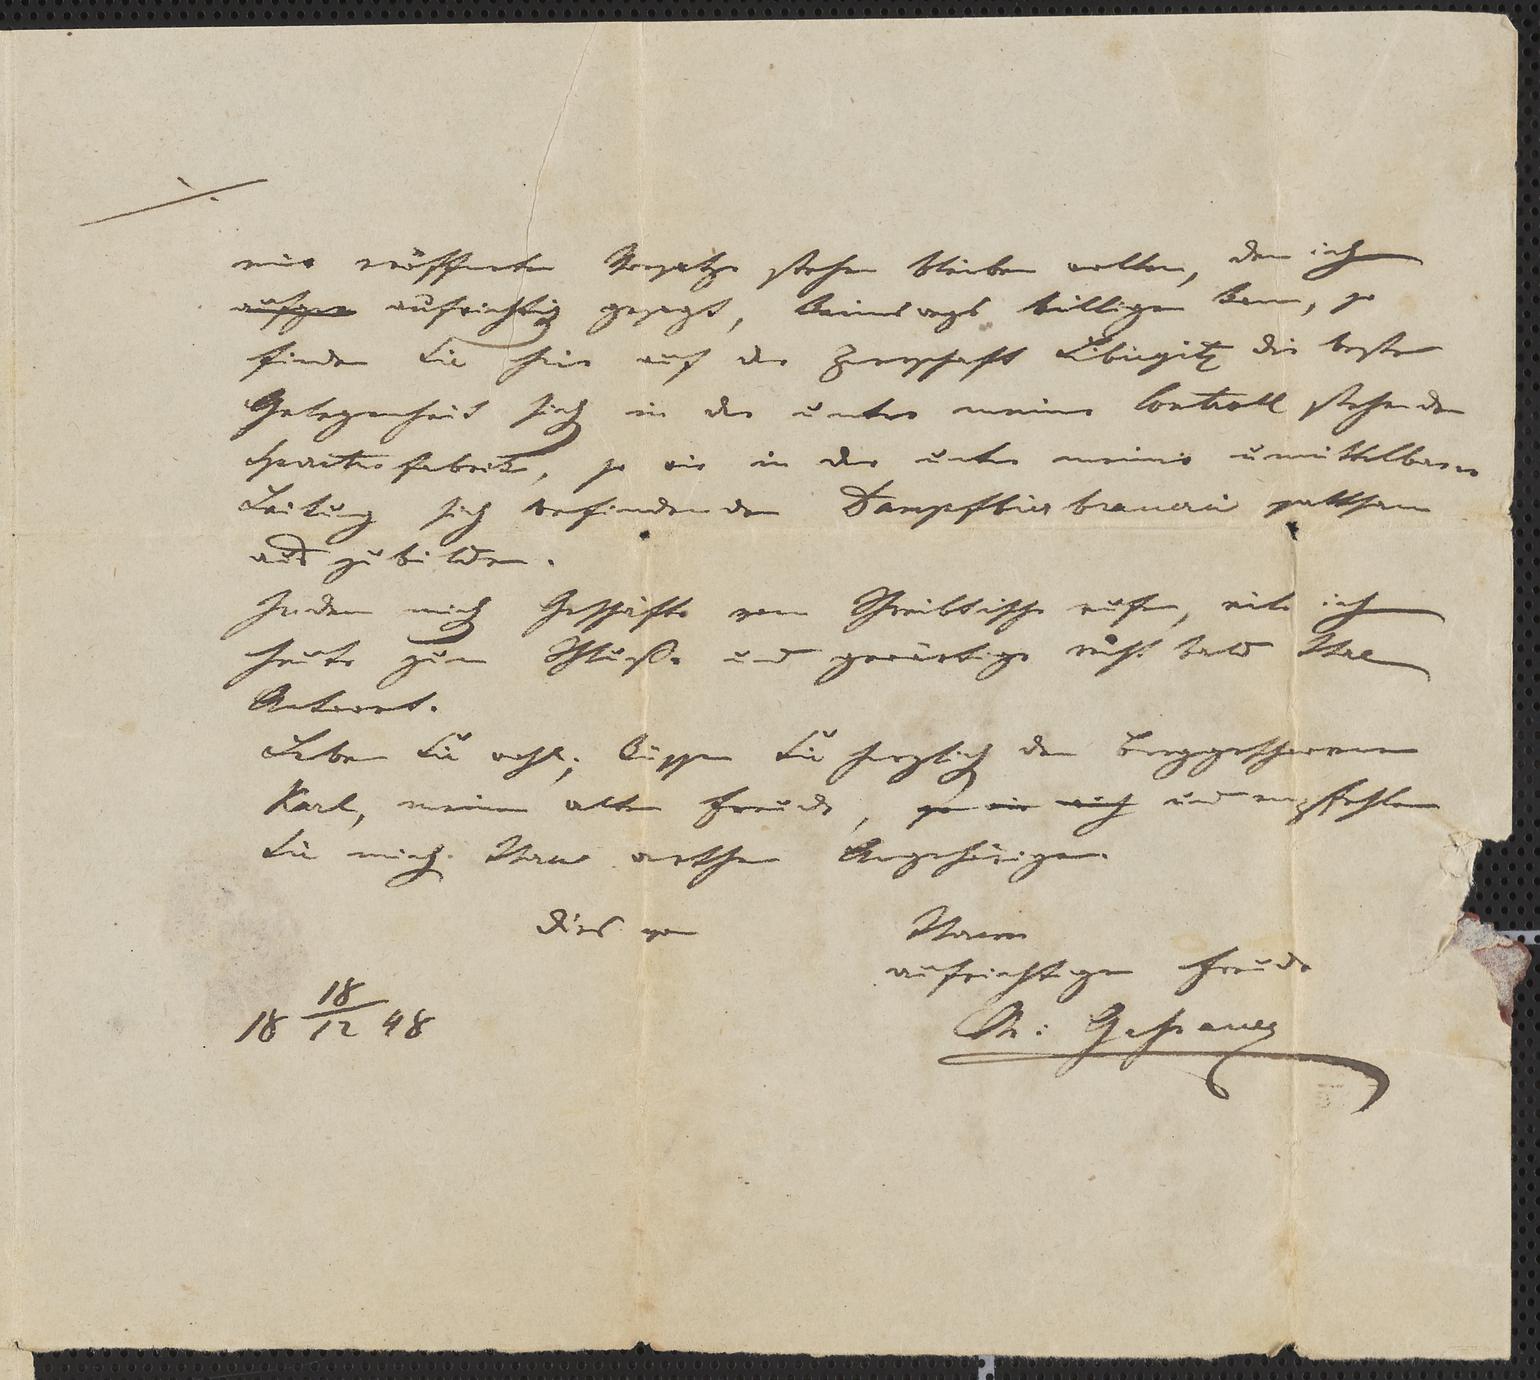 mir eröffneten Vorsatze stehen bleiben wollen, den ich
aufge aufrichtig gesagt, keineswegs billigen kann, so
finden Sie hier auf der Herrschaft Liběgitz die beste
Gelegenheit sich in der unter meiner Controll stehenden
fabrik, so wie in der unter meiner unmittelbaren
Leitung sich befindenden Dampfbierbrauerei
auszubilden.
Indem mich Geschäfte vom Schreibtische rufen, eile ich
heute zum Schluße und gewärtige recht bald Ihre
Antwort.
Leben Sie wohl; küssen Sie herzlich den
Karl, meinen alten Freund, so wie mich und empfehlen
Sie mich Ihren werthen Angehörigen.
Dies von Ihrem
aufrichtigen Freunde
18 18/12 48